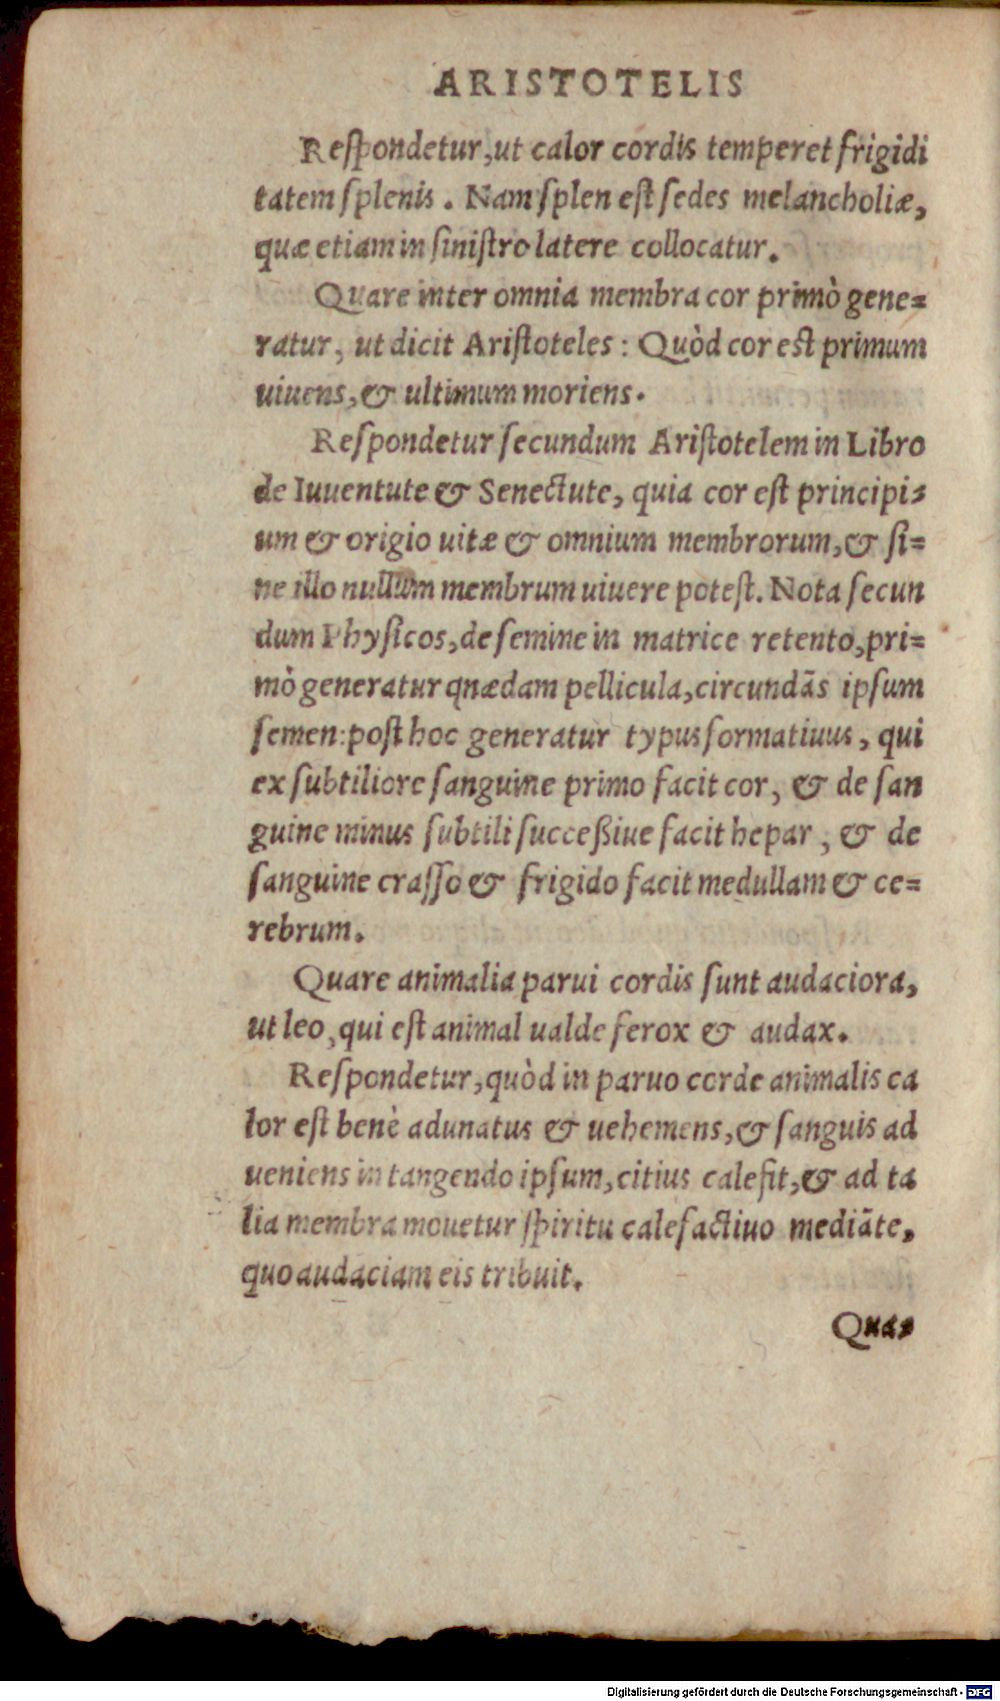 ARISTOTELIS
Reſpondetur, ut calor cordis temperet frigidi
tatem ſplenis. Nam ſplen eſt ſedes melancholiæ,
quæ etiam in ſiniſtro latere collocatur.
Quare inter omnia membra cor primò gene=
ratur, ut dicit Ariſtoteles: Quòd cor est primum
uiuens, & ultimum moriens.
Reſpondetur ſecundum Ariſtotelem in Libro
de Iuuentute & Senectute, quia cor eſt principi=
um & origio uitæ & omnium membrorum, & ſi=
ne illo nullum membrum uiuere poteſt. Nota ſecun
dum Phyſicos, de ſemine in matrice retento, pri=
mò generatur qnædam pellicula, circundãs ipſum
ſemen: poſt hoc generatur typus formatiuus, qui
ex ſubtiliore ſanguine primo facit cor, & de ſan
guine minus ſubtili ſucceßiue facit hepar, & de
ſanguine craſſo & frigido facit medullam & ce=
rebrum.
Quare animalia parui cordis ſunt audaciora,
ut leo, qui eſt animal ualde ferox & audax.
Reſpondetur, quòd in paruo corde animalis ca
lor eſt benè adunatus & uehemens, & ſanguis ad
ueniens in tangendo ipſum, citius calefit, & ad ta
lia membra mouetur ſpiritu calefactiuo mediãte,
quo audaciam eis tribuit.
Qua=
Digitalisierung gefördert durch die Deutsche Forschungsgemeinschaft - DFG